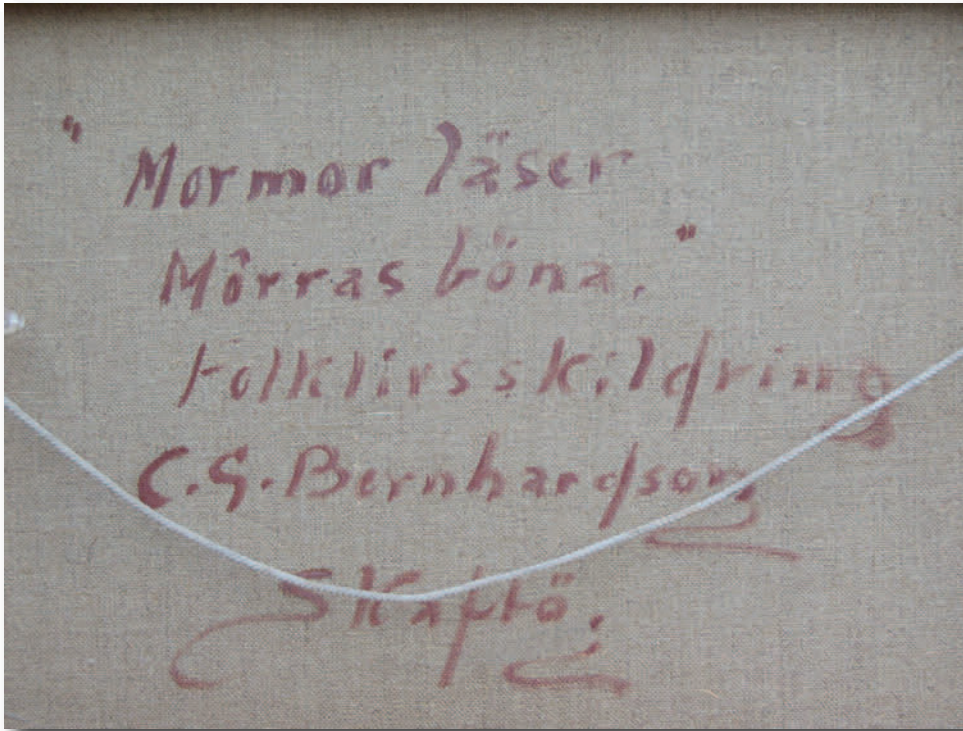 "Mormor läser
Môrras böna."
Folklivsskildring
C.G. Bernhardson
Skaftö.